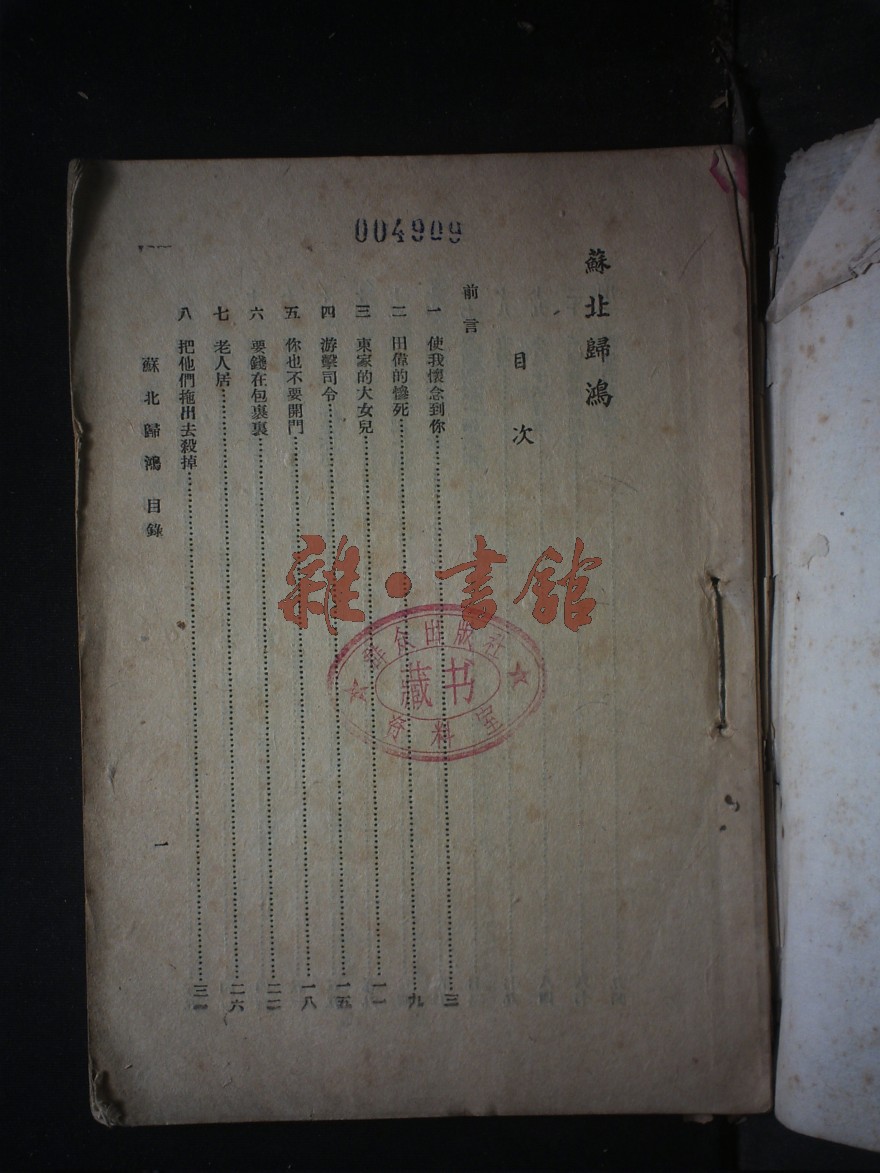 004909
蘇北歸鴻
目次
前言
一 使我懷念到你……三
二 田偉的慘死……九
三 東家的大女兒……一一
四 游擊司令……一五
五 你也不要開門……一八
六 要錢在包裹裏……二二
七 老人居……二六
八 把他們拖出去殺掉……三一
蘇北歸鴻 目錄
一
雜·書館
群众出版社
藏书
资料室